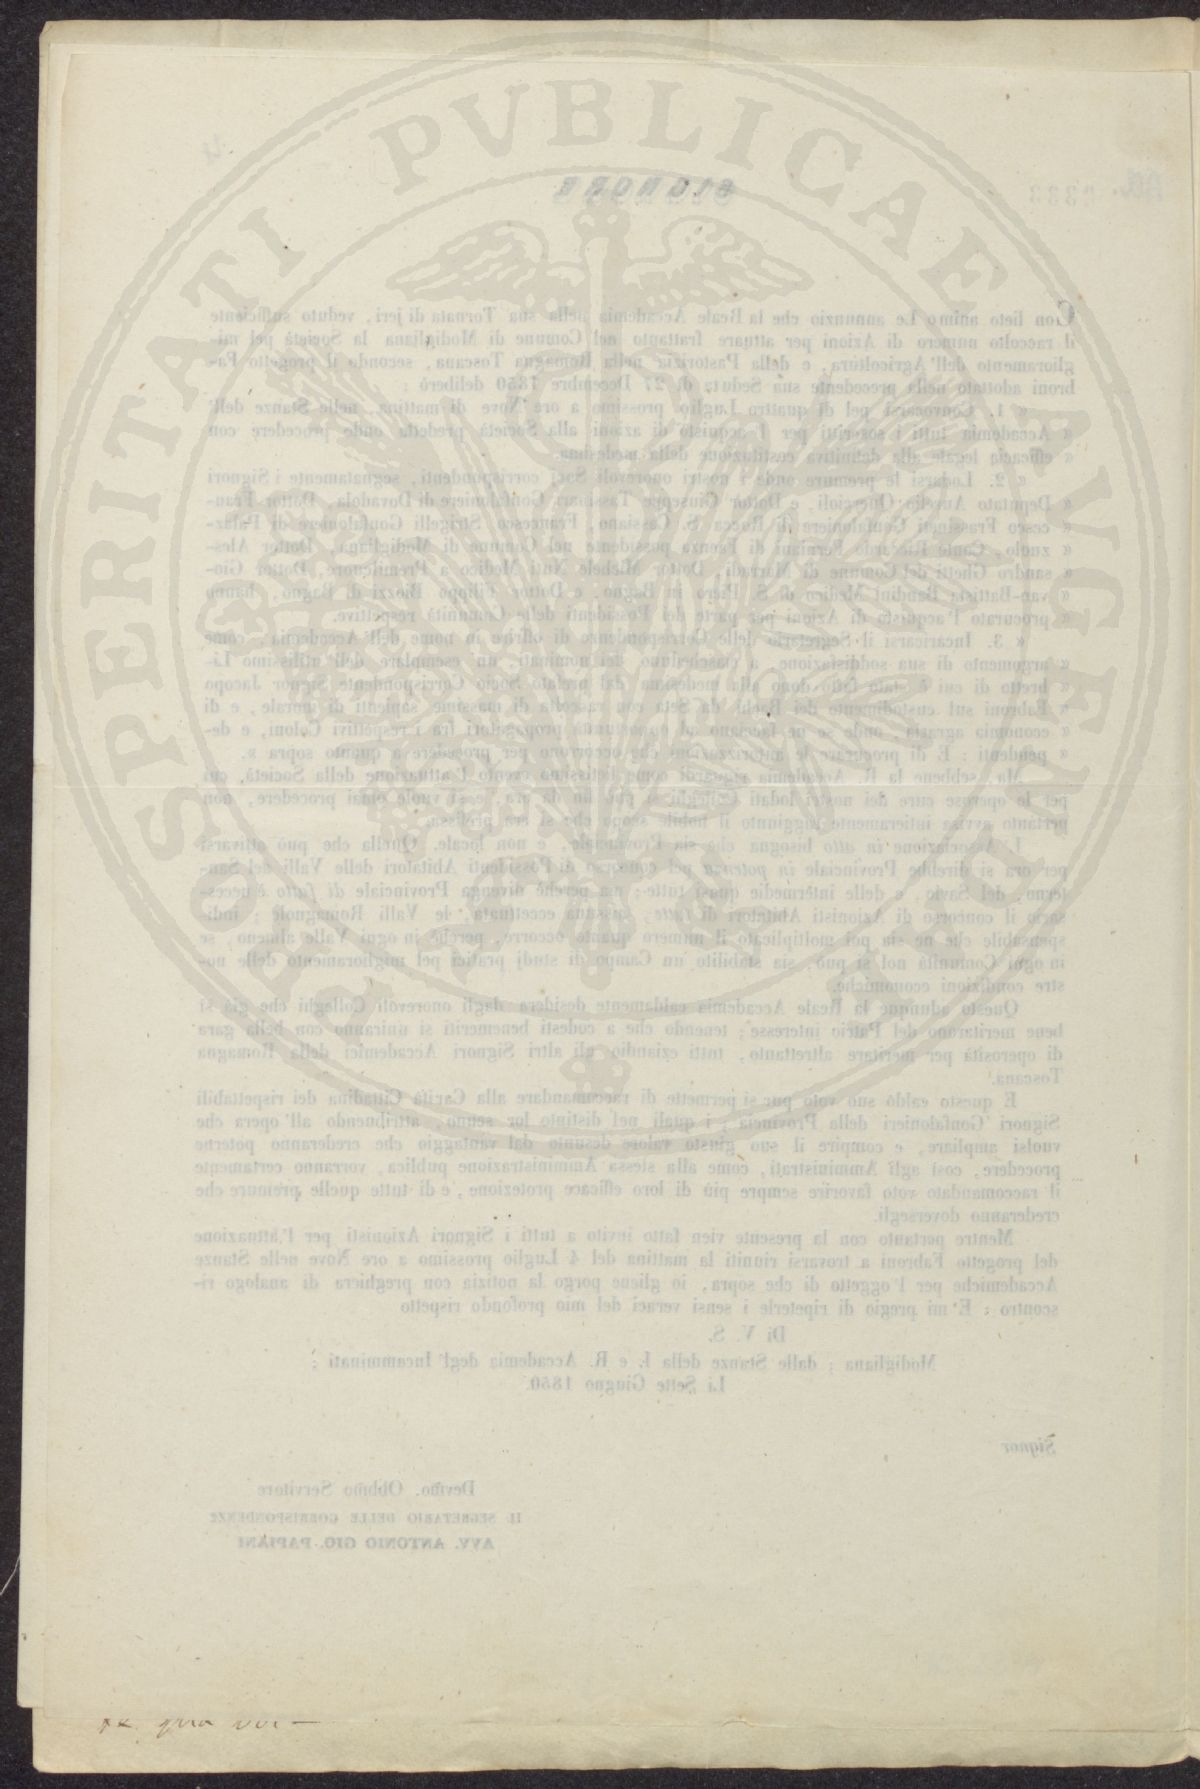 PROSPERITATI PVBLICAE AVGENDAE
SIGNORE
Con lieto animo Le annunzio che la Reale Accademia nella sua Tornata di jeri, veduto sufficiente
il raccolto numero di Azioni per attuare frattanto nel Comune di Modigliana la Società pel mi-
glioramento dell'Agricoltura, e della Pastorizia nella Romagna Toscana, secondo il progetto Fa-
broni adottato nella precedente sua Seduta di 27 Decembre 1850 deliberò:
« 1. Convocarsi pel dì quattro Luglio prossimo a ore Nove di mattina, nelle Stanze dell'
« Accademia tutti i soscritti per l'acquisto di azioni alla Società predetta onde procedere con
« efficacia legale alla definitiva costituzione della medesima.
« 2. Lodarsi le premure onde i nostri onorevoli Socj corrispondenti, segnatamente i Signori
« Deputato Aurelio Querzioli, e Dottor Giuseppe Tassinari Gonfaloniere di Dovadola, Dottor Fran-
« cesco Frassineti Gonfaloniere di Rocca S. Cassiano, Francesco Strigelli Gonfaloniere di Palaz-
« zuolo, Conte Riccardo Ferniani di Faenza possidente nel Comune di Modigliana, Dottor Ales-
« sandro Ghetti del Comune di Marradi, Dottor Michele Nuti Medico a Premilquore, Dottor Gio-
« van-Battista Bandini Medico di S. Piero in Bagno, e Dottor Filippo Biozzi di Bagno, hanno
« procurato l'acquisto di Azioni per parte dei Possidenti delle Comunità respettive.
« 3. Incaricarsi il Segretario delle Corrispondenze di offrire in nome dell'Accademia, come
« argomento di sua soddisfazione, a ciascheduno dei nominati, un esemplare dell'utilissimo Li-
« bretto di cui è stato fatto dono alla medesima dal prelato Socio Corrispondente Signor Jacopo
« Fabroni sul custodimento dei Bachi da Seta con raccolta di massime sapienti di morale, e di
« economia agraria, onde se ne facciano ad opportunità propagatori fra i respettivi Coloni, e de-
« pendenti: E di procurare le autorizzazioni che occorrono per procedere a quanto sopra ».
Ma sebbene la R. Accademia riguardi come lietissimo evento l'attuazione della Società, cui
per le operose cure dei nostri lodati Colleghi si può fin da ora, e si vuole omai procedere, non
pertanto avvisa intieramente raggiunto il nobile scopo che si era prefissa.
L'Associazione in atto bisogna che sia Provinciale, e non locale. Quella che può attivarsi
per ora si direbbe Provinciale in potenza pel concorso di Possidenti Abitatori delle Valli del San-
terno, del Savio, e delle intermedie quasi tutte; ma perchè divenga Provinciale di fatto è neces-
sario il concorso di Azionisti Abitatori di tutte, nessuna eccettuata, le Valli Romagnole; indi-
spensabile che ne sia poi moltiplicato il numero quanto occorre, perchè in ogni Valle almeno, se
in ogni Comunità nol si può, sia stabilito un Campo di studj pratici pel miglioramento delle no-
stre condizioni economiche.
Questo adunque la Reale Accademia caldamente desidera dagli onorevoli Colleghi che già sì
bene meritarono del Patrio interesse; tenendo che a codesti benemeriti si uniranno con bella gara
di operosità per meritare altrettanto, tutti eziandio gli altri Signori Accademici della Romagna
Toscana.
E questo caldo suo voto pur si permette di raccomandare alla Carità Cittadina dei rispettabili
Signori Gonfalonieri della Provincia, i quali nel distinto lor senno, attribuendo all'opera che
vuolsi ampliare, e compire il suo giusto valore desunto dal vantaggio che crederanno poterne
procedere, così agli Amministrati, come alla stessa Amministrazione publica, vorranno certamente
il raccomandato voto favorire sempre più di loro efficace protezione, e di tutte quelle premure che
crederanno doversegli.
Mentre pertanto con la presente vien fatto invito a tutti i Signori Azionisti per l'attuazione
del progetto Fabroni a trovarsi riuniti la mattina del 4 Luglio prossimo a ore Nove nelle Stanze
Accademiche per l'oggetto di che sopra, io gliene porgo la notizia con preghiera di analogo ri-
scontro: E mi pregio di ripeterle i sensi veraci del mio profondo rispetto
Di V. S.
Modigliana; dalle Stanze della I. e R. Accademia degl'Incamminati;
Li Sette Giugno 1850.
Signor
Devmo. Obbmo Servitore
IL SEGRETARIO DELLE CORRISPONDENZE
AVV. ANTONIO GIO. PAPIANI